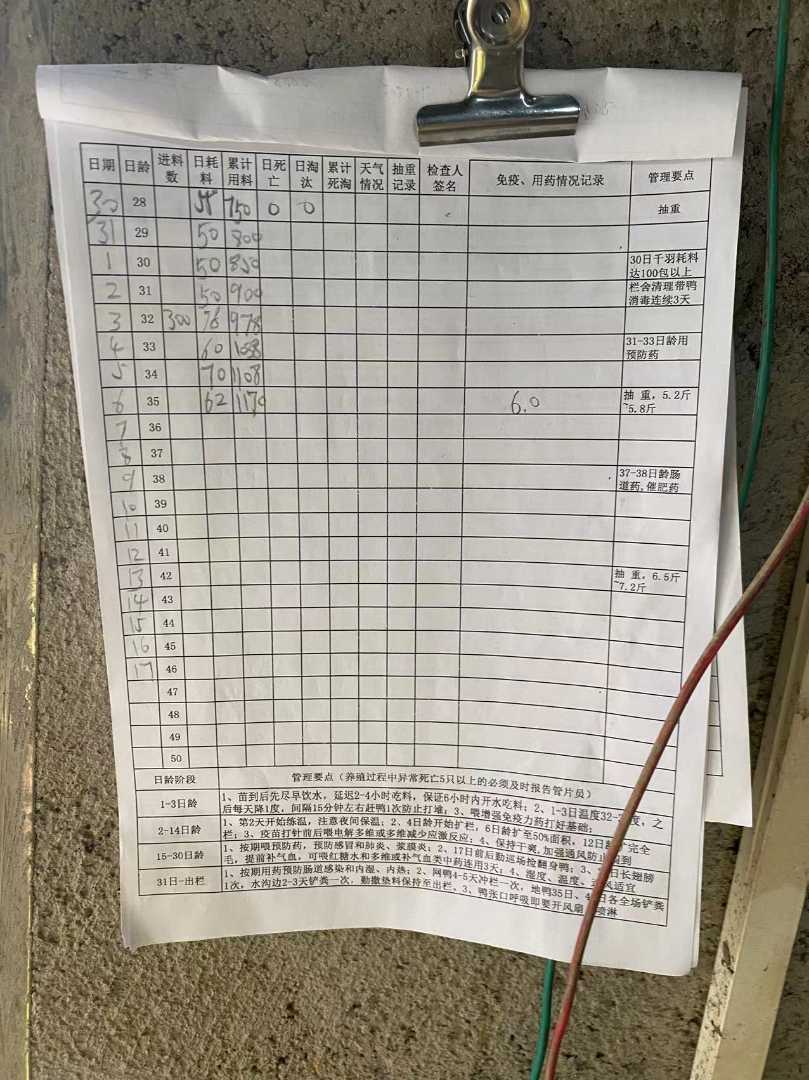 日期 日龄 进料数 日耗料 累计用料 日死亡 日淘汰 累计死淘 天气情况 抽重记录 检查人签名 免疫、用药情况记录 管理要点
30 28 750 0 0 抽重
31 29 50 800
1 30 50 850 30日千羽耗料达100包以上
2 31 50 900 栏舍清理带鸭消毒连续3天
3 32 300 978
4 33 60 31-33日龄用预防药
5 34 70 1108
6 35 62 1170 6.0 抽 重，5.2斤~5.8斤
7 36
8 37
9 38 37-38日龄肠道药,催肥药
10 39
11 40
12 41
13 42 抽 重，6.5斤~7.2斤
14 43
15 44
16 45
17 46
47
48
49
50
日龄阶段 管理要点（养殖过程中异常死亡5只以上的必须及时报告管片员）
1-3日龄 1、苗到后先尽早饮水，延迟2-4小时吃料，保证6小时内开水吃料；2、1-3日温度32- 度，之
后每天降1度，间隔15分钟左右赶鸭1次防止打堆；3、喂增强免疫力药打好基础；
2-14日龄 1、第2天开始练温，注意夜间保温；2、4日龄开始扩栏，6日龄扩至50%面积，12日龄 完全
栏；3、疫苗打针前后喂电解多维或多维减少应激反应；4、保持干爽,加强通风防止
15-30日龄 1、按期喂预防药，预防感冒和肺炎、浆膜炎；2、17日前后勤巡场检翻身鸭；3、 日长翅膀
毛，提前补气血，可喂红糖水和多维或补气血类中药连用3天；4、湿度、温度、 风适宜
31日-出栏 1、按期用药预防肠道感染和内湿、内热；2、网鸭4-5天冲栏一次，地鸭35日、4 日各全场铲粪
1次，水沟边2-3天铲粪一次，勤撒垫料保持至出栏、3、鸭张口呼吸即要开风扇 喷淋